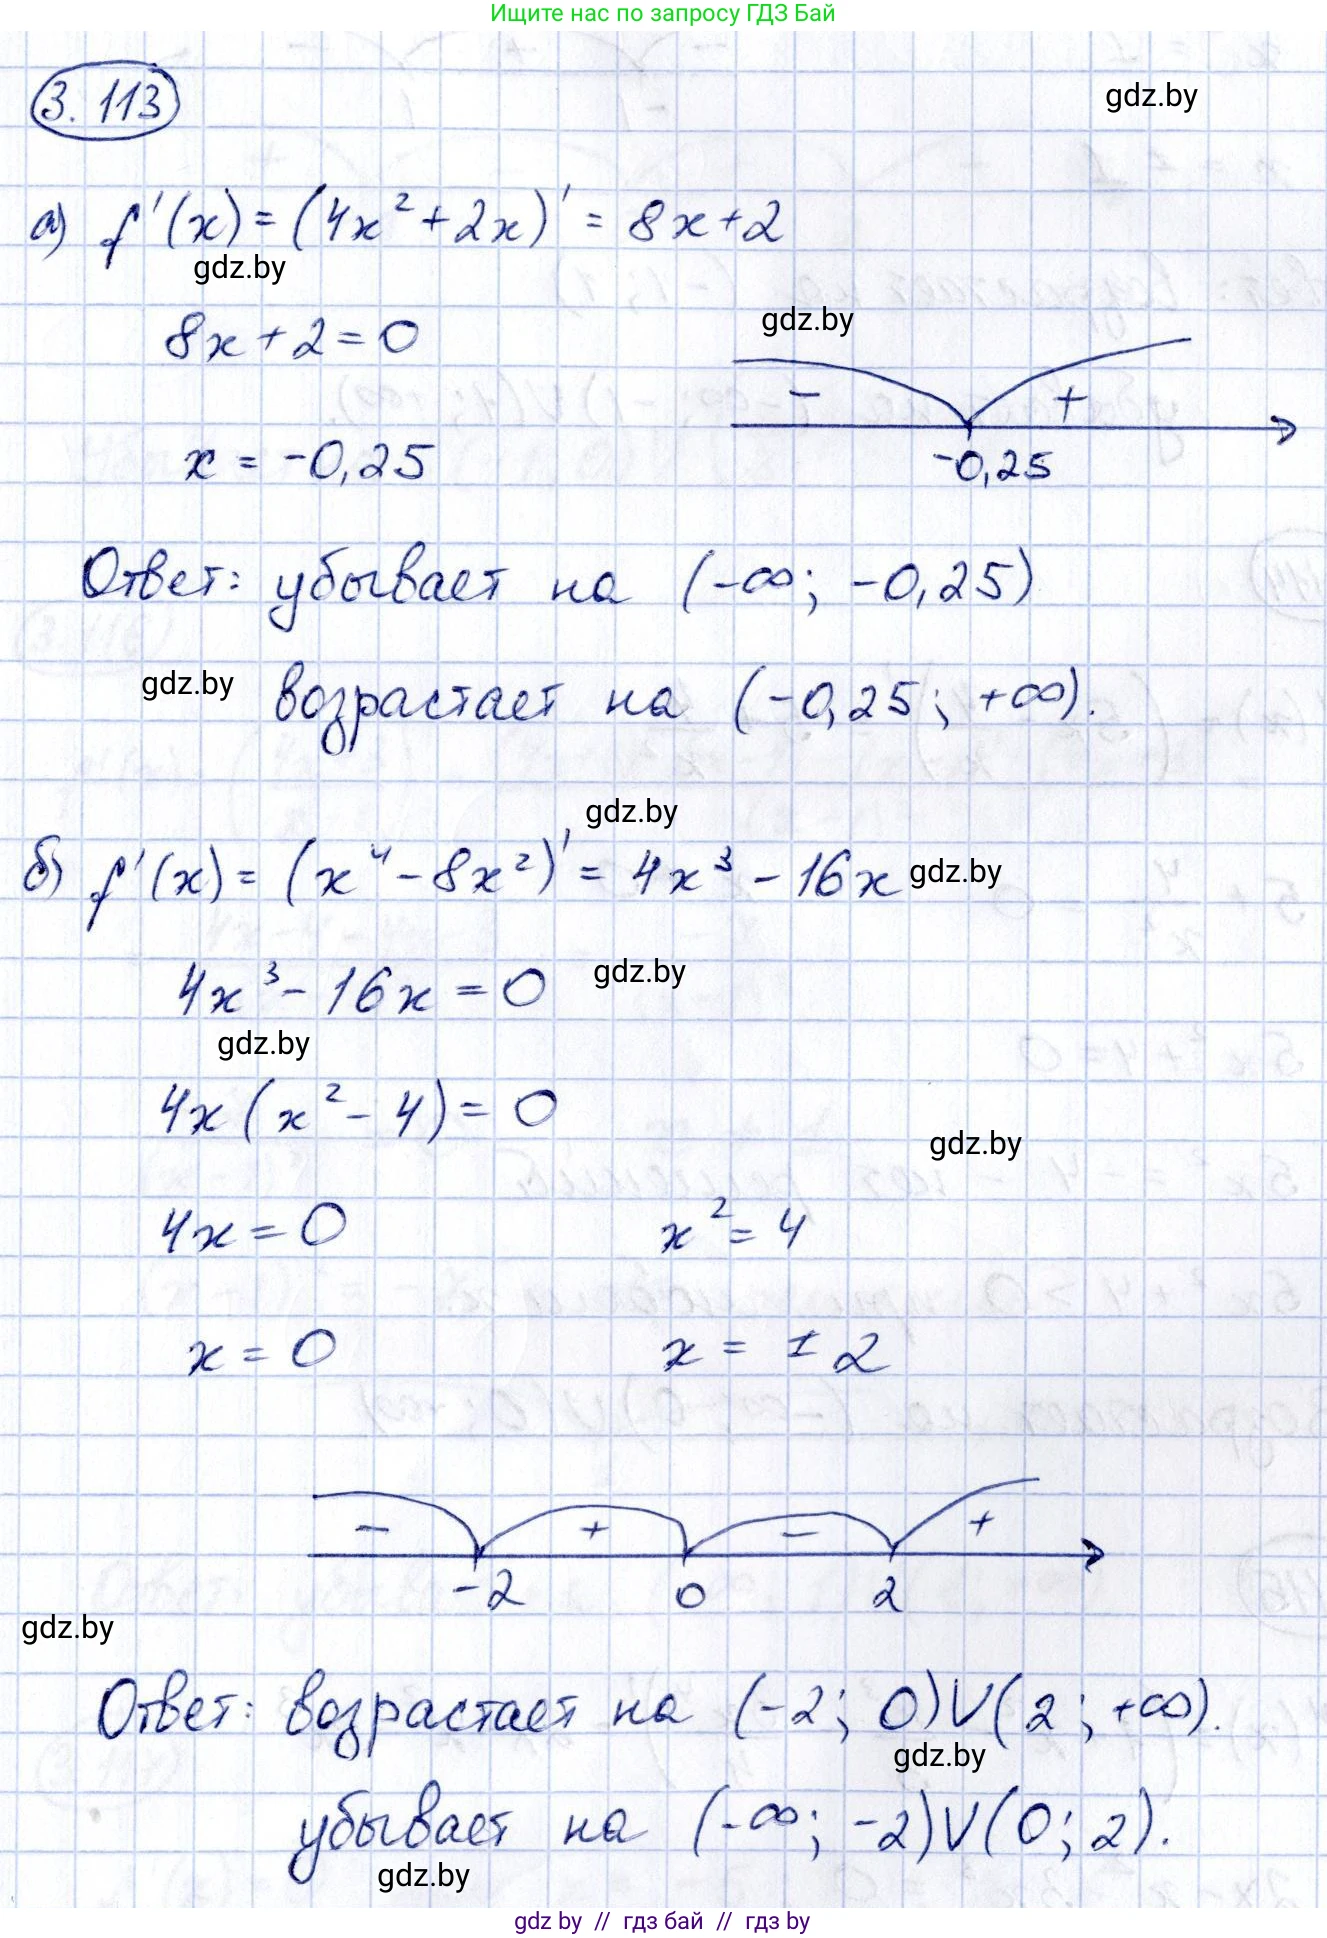 Ищите нас по запросу ГДЗ Бай
3.113
gdz.by
а) f'(x) = (4x² + 2x)' = 8x + 2
gdz.by
8x + 2 = 0
gdz.by
- +
x = -0,25
-0,25
Ответ: убывает на (-∞; -0,25)
gdz.by
возрастает на (-0,25; +∞).
gdz.by
б) f'(x) = (x⁴ - 8x²)' = 4x³ - 16x
gdz.by
4x³ - 16x = 0
gdz.by
gdz.by
4x(x² - 4) = 0
gdz.by
4x = 0 x² = 4
x = 0 x = ±2
- + - +
-2 0 2
gdz.by
Ответ: возрастает на (-2; 0)∪(2; +∞).
gdz.by
убывает на (-∞; -2)∪(0; 2).
gdz.by
gdz by // гдз бай // гдз by